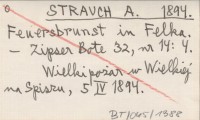 STRAUCH A. 1894.
Feuersbrunst in Felka.
– Zipser Bote 32, nr 14: 4.
Wielki pożar w Wielkiej
na Spiszu, 5 IV 1894.
BT/045/1388